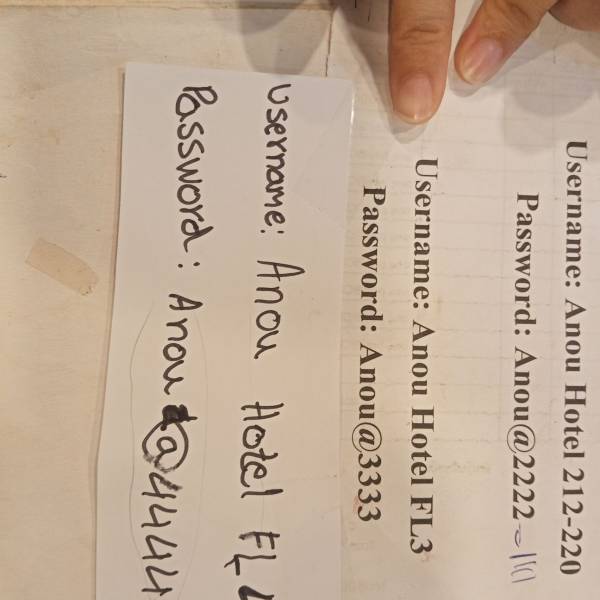 Username: Anou Hotel 212-220
Password: Anou@2222
Username: Anou Hotel FL3
Password: Anou@3333
Username: Anou Hotel FL
Password: Anou @4444